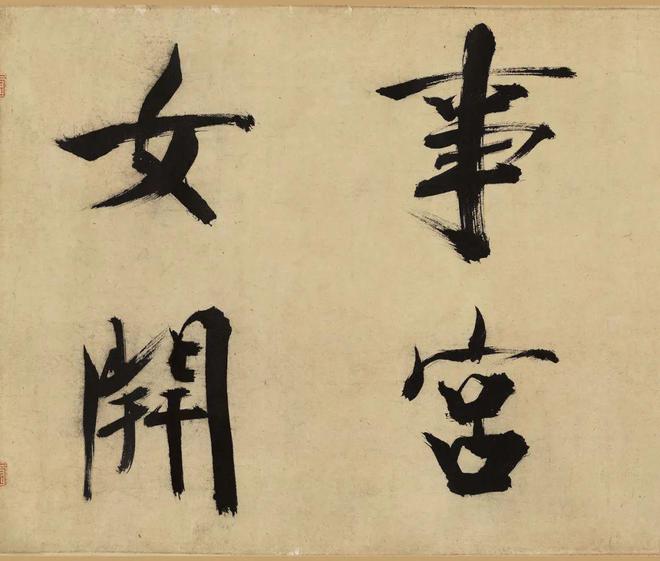 事宮
女開